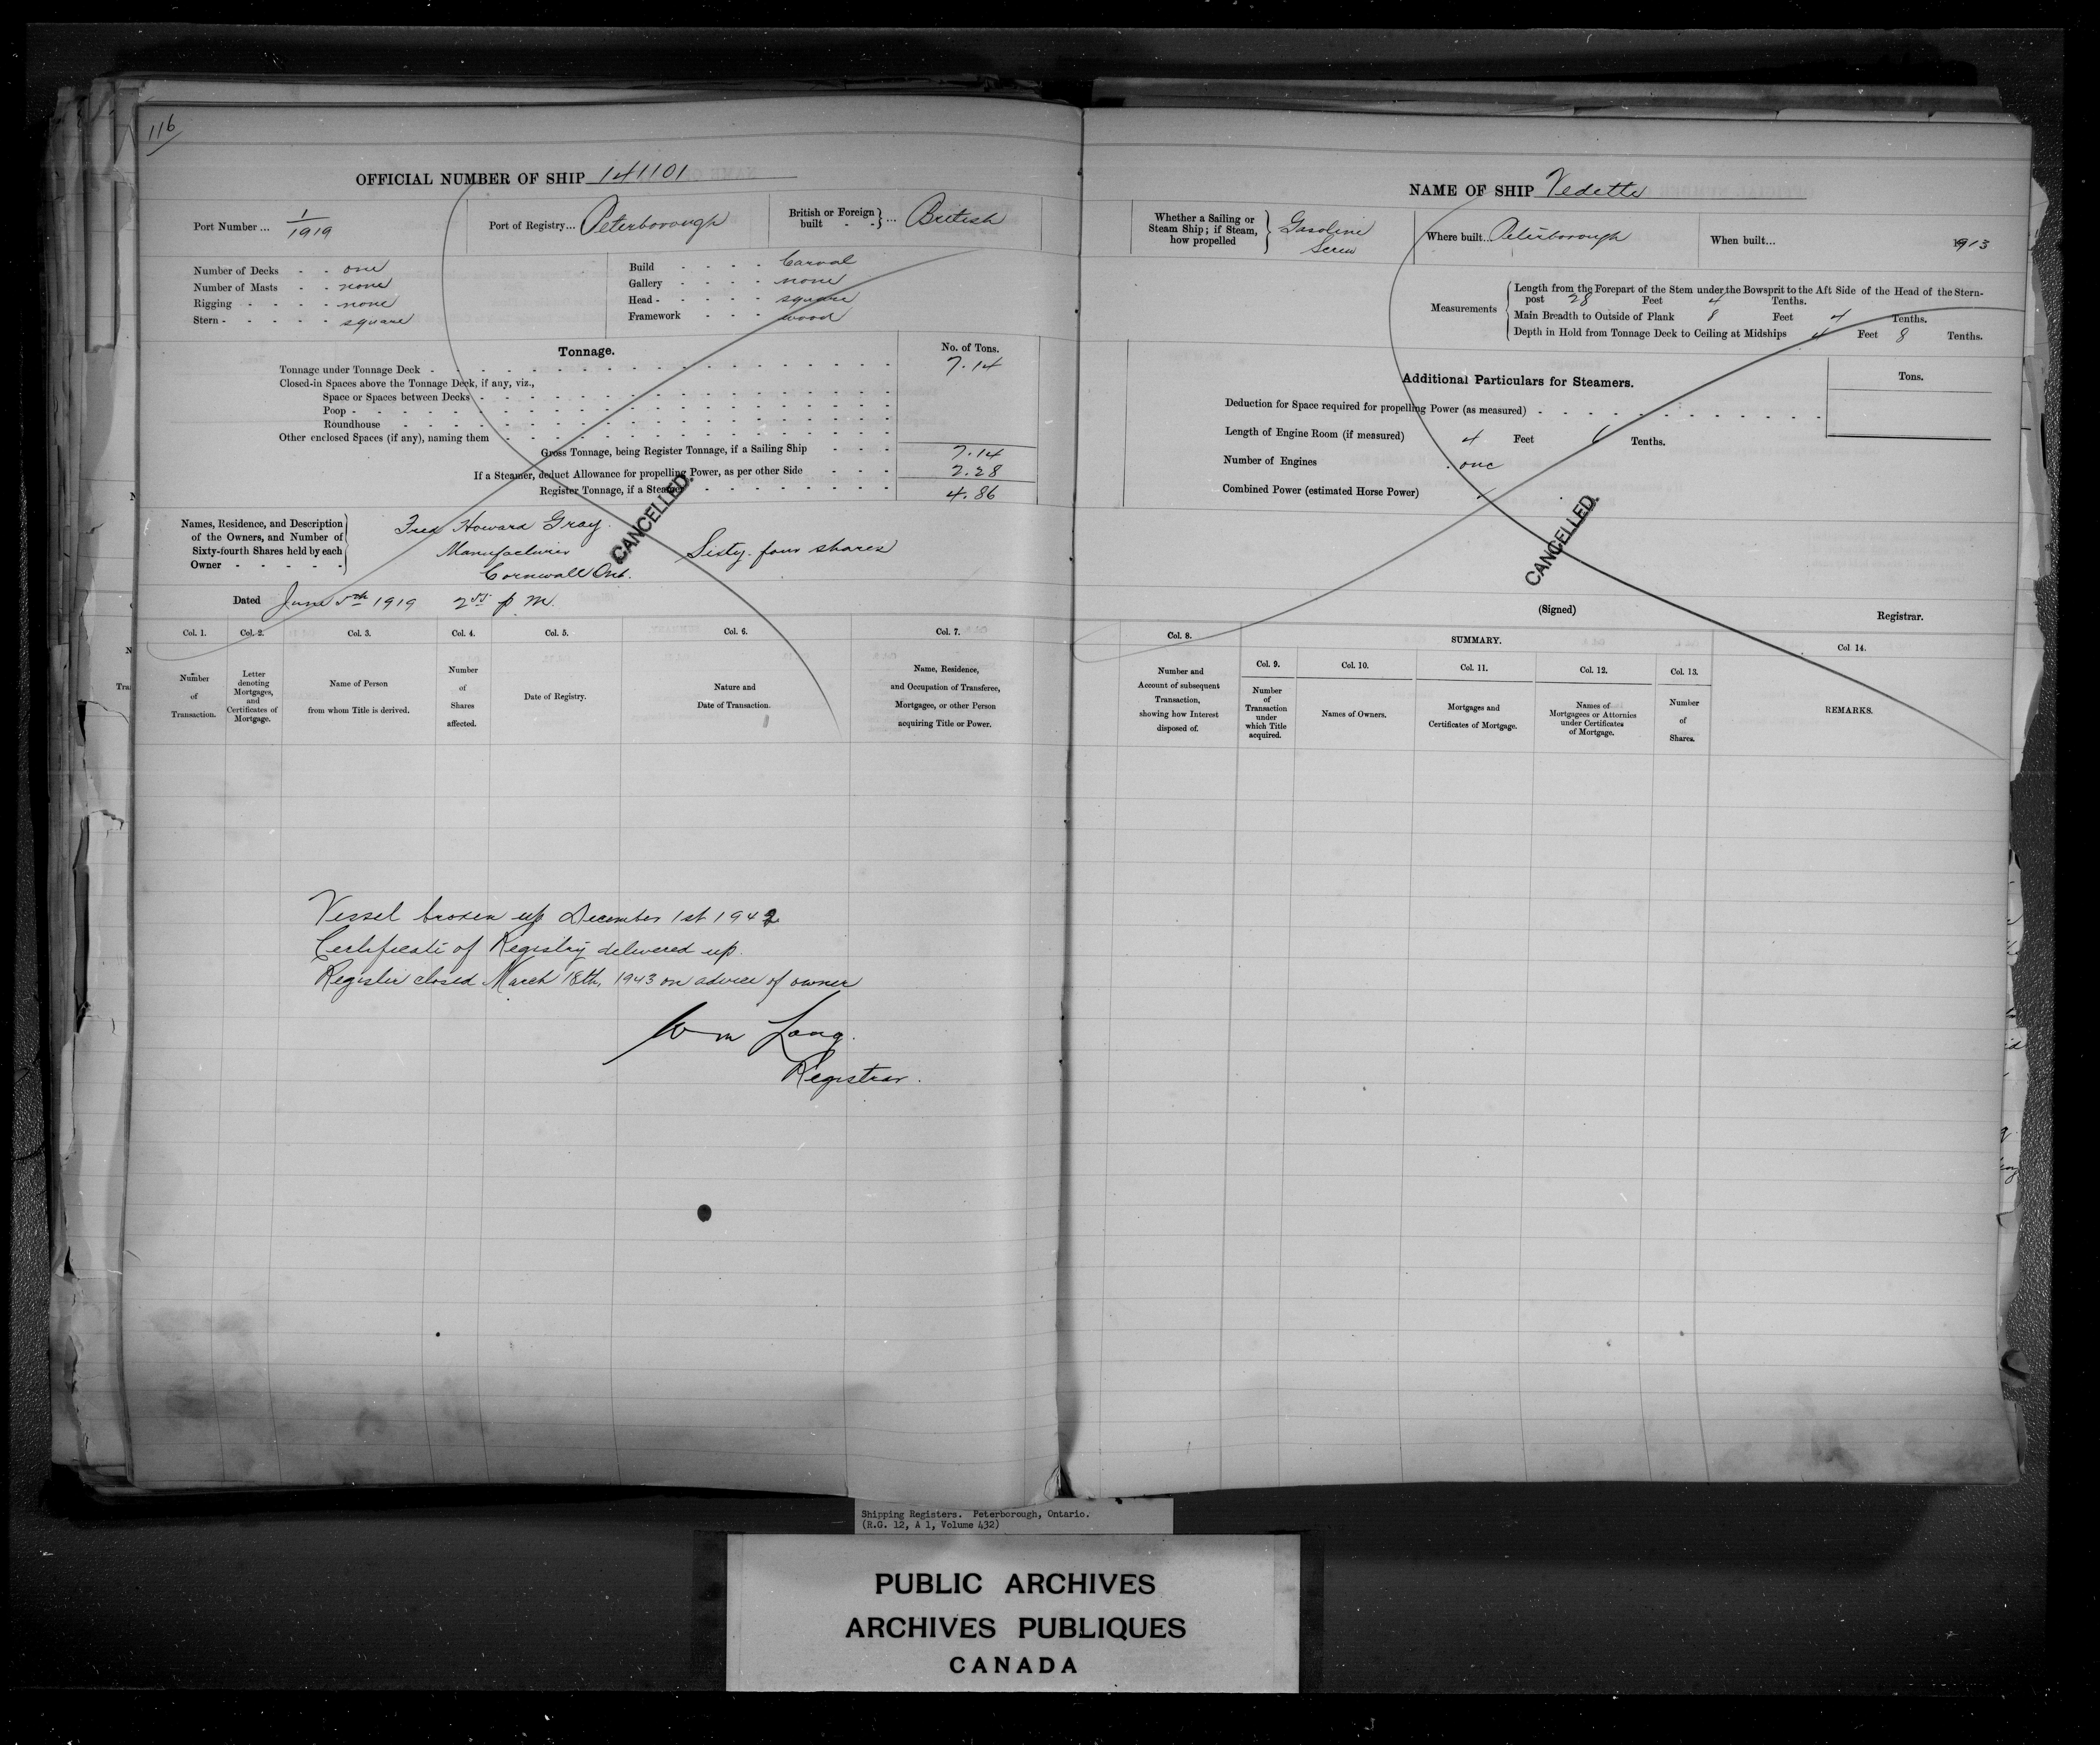 116
OFFICIAL NUMBER OF SHIP 141101
Port Number ... 1/1919
Port of Registry... Peterborough
British or Foreign built - - } ... British
Number of Decks - - one
Number of Masts - - none
Rigging - - - - none
Stern - - - - - square
Build - - - - Carval
Gallery - - - - none
Head - - - - - square
Framework - - - wood
Tonnage.
No. of Tons.
Tonnage under Tonnage Deck - 7.14
Closed-in Spaces above the Tonnage Deck, if any, viz.,
Space or Spaces between Decks
Poop
Roundhouse
Other enclosed Spaces (if any), naming them
Gross Tonnage, being Register Tonnage, if a Sailing Ship - - - 7.14
If a Steamer, deduct Allowance for propelling Power, as per other Side - - - 2.28
Register Tonnage, if a Steamer - 4.86
CANCELLED.
Names, Residence, and Description
of the Owners, and Number of
Sixty-fourth Shares held by each
Owner - - - - -
Fred Howard Gray.
Manufacturer
Cornwall Ont.
Sisty-four shares
Dated June 5th 1919 2 55 p m.
Col. 1.
Number
of
Transaction.
Col. 2.
Letter
denoting
Mortgages,
and
Certificates of
Mortgage.
Col. 3.
Name of Person
from whom Title is derived.
Col. 4.
Number
of
Shares
affected.
Col. 5.
Date of Registry.
Col. 6.
Nature and
Date of Transaction.
Col. 7.
Name, Residence,
and Occupation of Transferee,
Mortgagee, or other Person
acquiring Title or Power.
Vessel broken up December 1st 1942
Certificate of Registry delivered up.
Register closed March 18th, 1943 on advice of owner
Wm Lang.
Registrar.
NAME OF SHIP Vedette
Whether a Sailing or
Steam Ship; if Steam,
how propelled
Gasoline
Screw
Where built... Peterborough
When built... 1913
Measurements
Length from the Forepart of the Stem under the Bowsprit to the Aft Side of the Head of the Stern-
post 28 Feet 4 Tenths.
Main Breadth to Outside of Plank 8 Feet 4 Tenths.
Depth in Hold from Tonnage Deck to Ceiling at Midships 4 Feet 8 Tenths.
Additional Particulars for Steamers.
Tons.
Deduction for Space required for propelling Power (as measured)
Length of Engine Room (if measured) 4 Feet 6 Tenths.
Number of Engines one
Combined Power (estimated Horse Power)
CANCELLED.
(Signed)
Registrar.
Col. 8.
Number and
Account of subsequent
Transaction,
showing how Interest
disposed of.
SUMMARY.
Col. 9.
Number
of
Transaction
under
which Title
acquired.
Col. 10.
Names of Owners.
Col. 11.
Mortgages and
Certificates of Mortgage.
Col. 12.
Names of
Mortgagees or Attornies
under Certificates
of Mortgage.
Col. 13.
Number
of
Shares.
Col 14.
REMARKS.
Shipping Registers. Peterborough, Ontario.
(R.G. 12, A 1, Volume 432)
PUBLIC ARCHIVES
ARCHIVES PUBLIQUES
CANADA